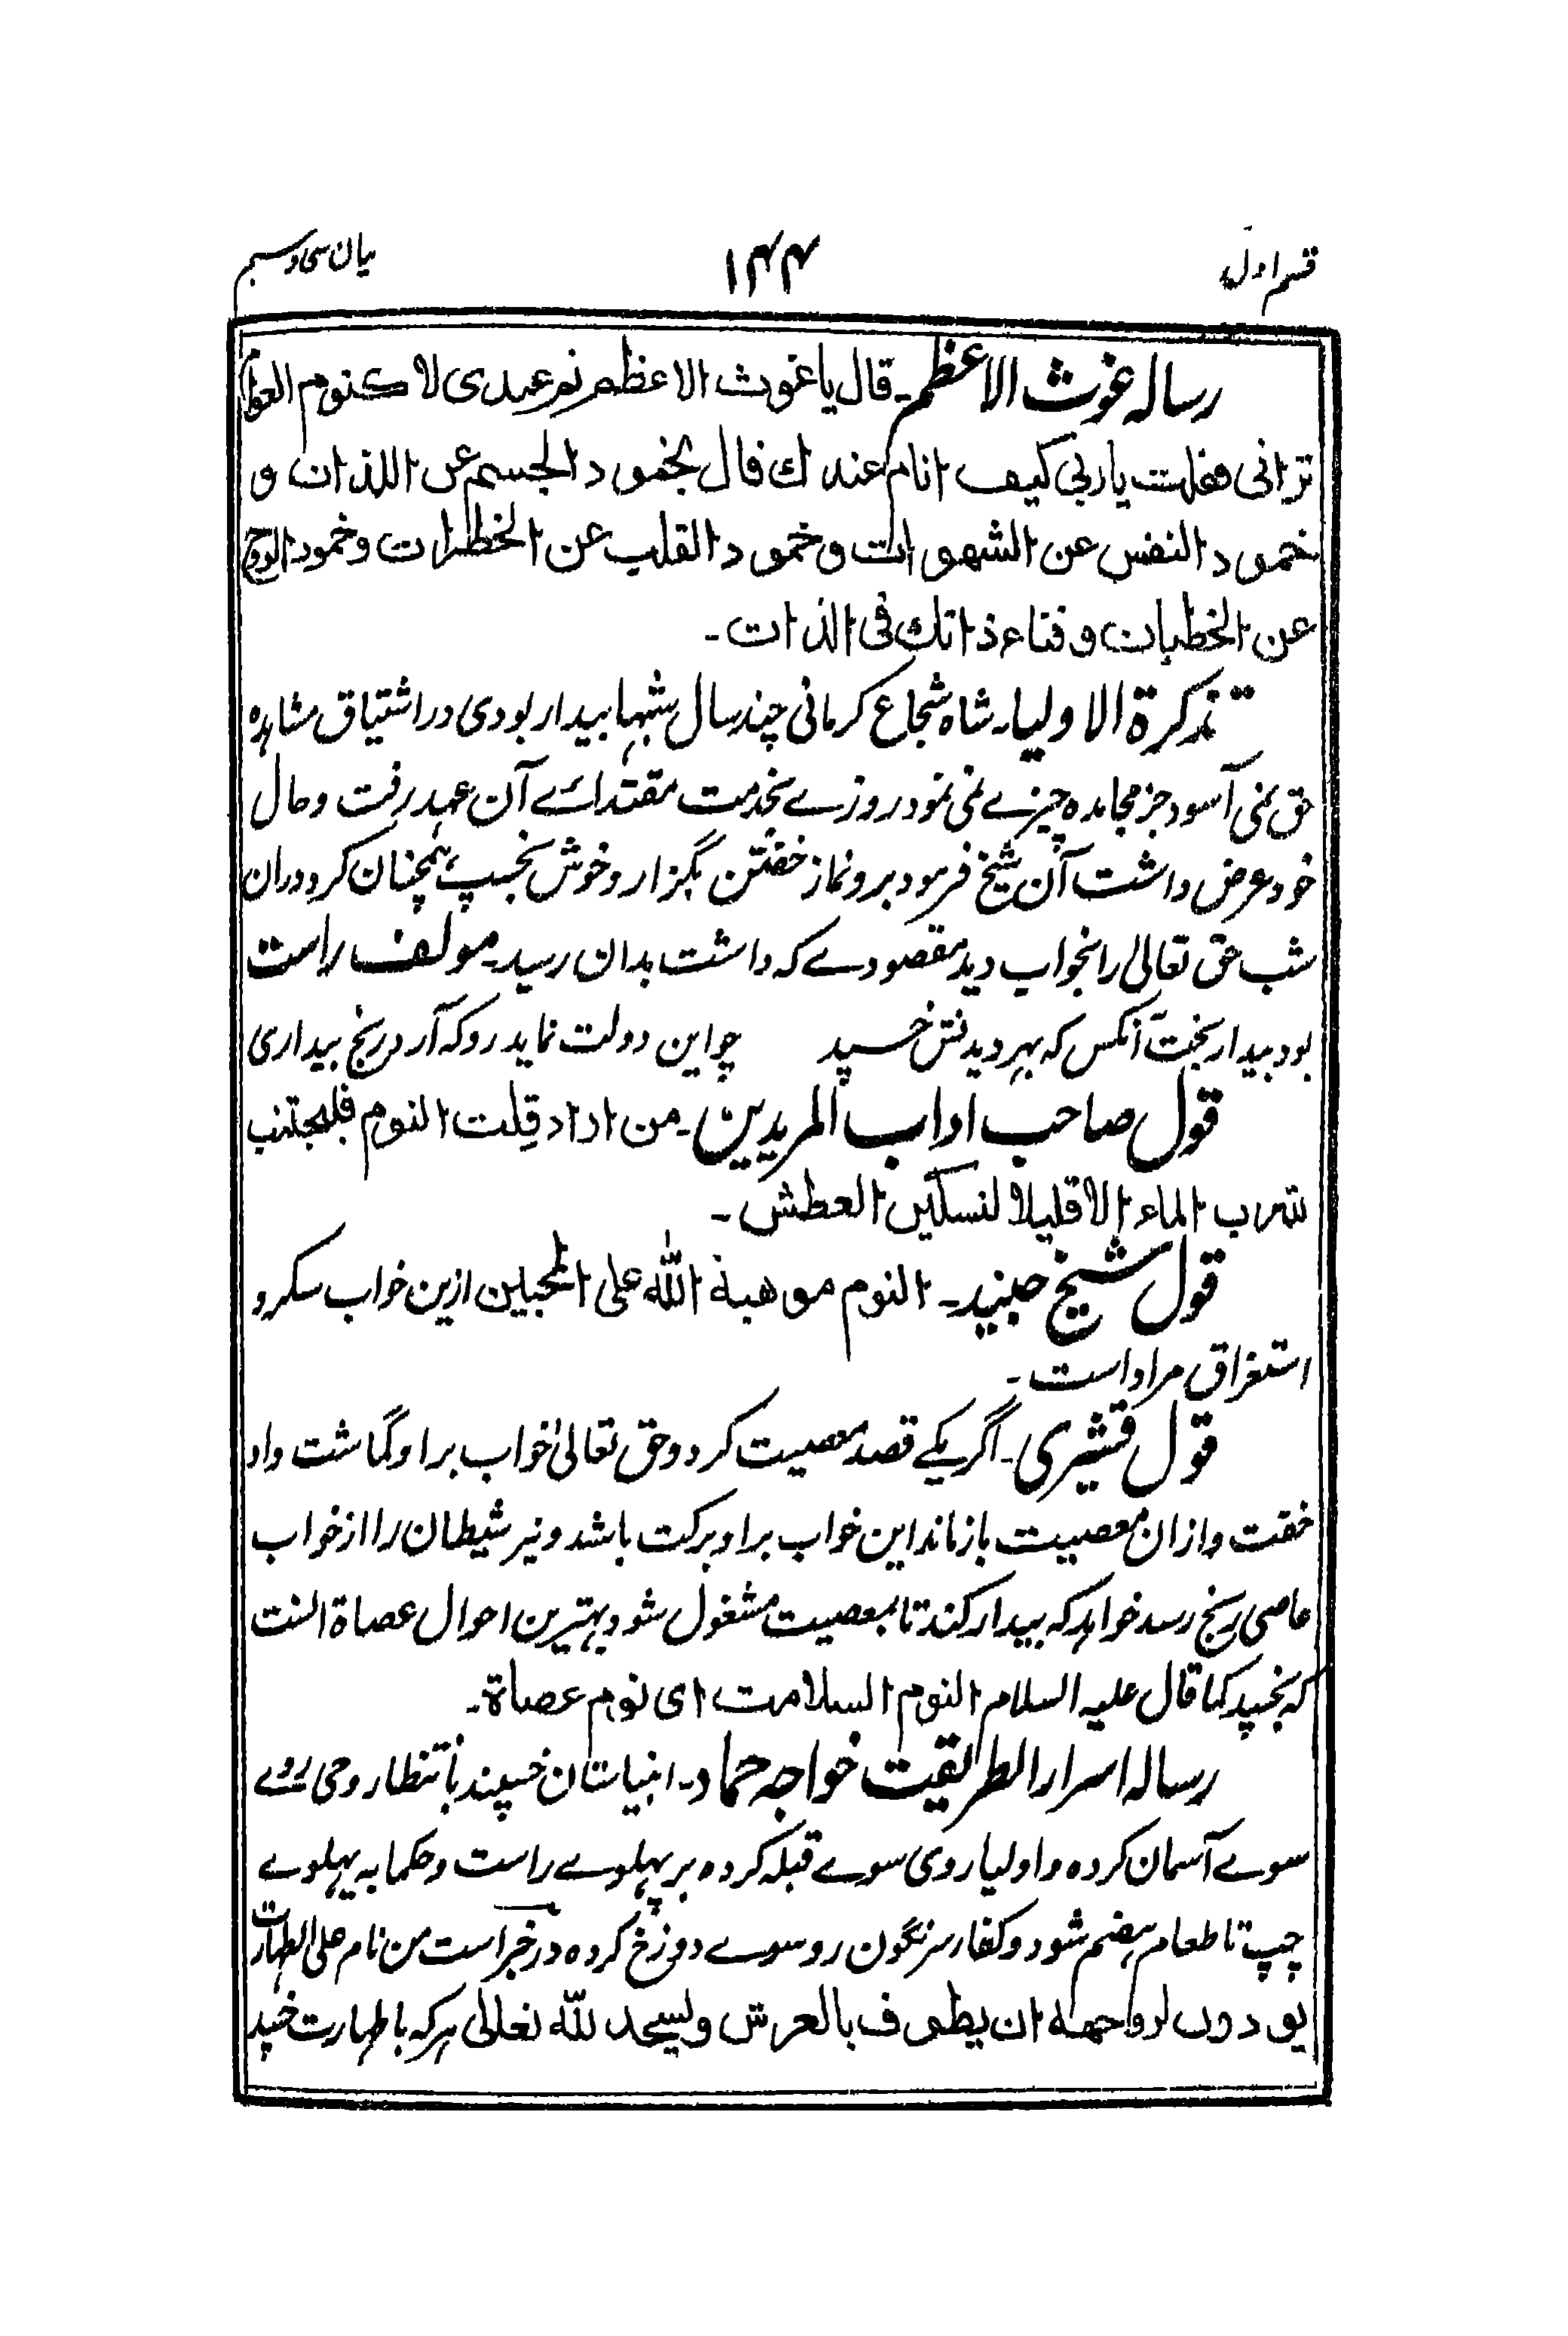 قسم اول
۱۴۴
بیان سی و سیم
رساله غوث الاعظم۔ قال یا غوث الاعظم نم عبدی لا کنوم العوام
ترانی فقلت یا ربی کیف انام عندك قال بخمود الجسم عن اللذات و
خمود النفس عن الشهوات و خمود القلب عن الخطرات و خمود الروح
عن الخطیات و فناء ذاتك فی الذات۔
تذکرة الاولیا۔ شاه شجاع کرمانی چند سال شبها بیدار بودی در اشتیاق مشاهده
حق نمی آسود جز مجاهده چیزے نمی نمود روزے بخدمت مقتدائے آن عهد رفت و حال
خود عرض داشت آن شیخ فرمود برو نماز خفتن بگزار و خوش بخسپ همچنان کرد دران
شب حق تعالی را بخواب دید مقصودے که داشت بدان رسید۔ مولف راست
بود بیدار بخت آنکس که بهر دیدنش خسپد چو این دولت نماید رو که آرد رنج بیداری
قول صاحب اداب المریدین۔ من اراد قلت النوم فلیجتنب
شرب الماء الا قلیلا لتسکین العطش۔
قول شیخ جنید۔ النوم موهبة الله علی المحبین ازین خواب سکر و
استغراق مراد است۔
قول قشیری۔ اگر یکے قصد معصیت کرد و حق تعالیٰ خواب بر او گماشت و او
خفت و ازان معصیت باز ماند این خواب بر او برکت باشد و نیز شیطان را از خواب
عاصی رنج رسد خواهد که بیدار کند تا بمعصیت مشغول شود بهترین احوال عصاة انست
که بخسپد کما قال علیه السلام النوم السلامت ای نوم عصاة۔
رساله اسرار الطریقت خواجه حماد۔ انبیا ستان خسپند بانتظار وحی روے
سوے آسمان کرده و اولیا روی سوے قبله کرده بر پهلوے راست و حکما به پهلوے
چپ تا طعام هضم شود و کفار سرنگون رو سوے دوزخ کرده در خبر است من نام علی الطهارت
یودون لروحه ان یطوف بالعرش و لیسجد لله تعالی هر که با طهارت خسپد